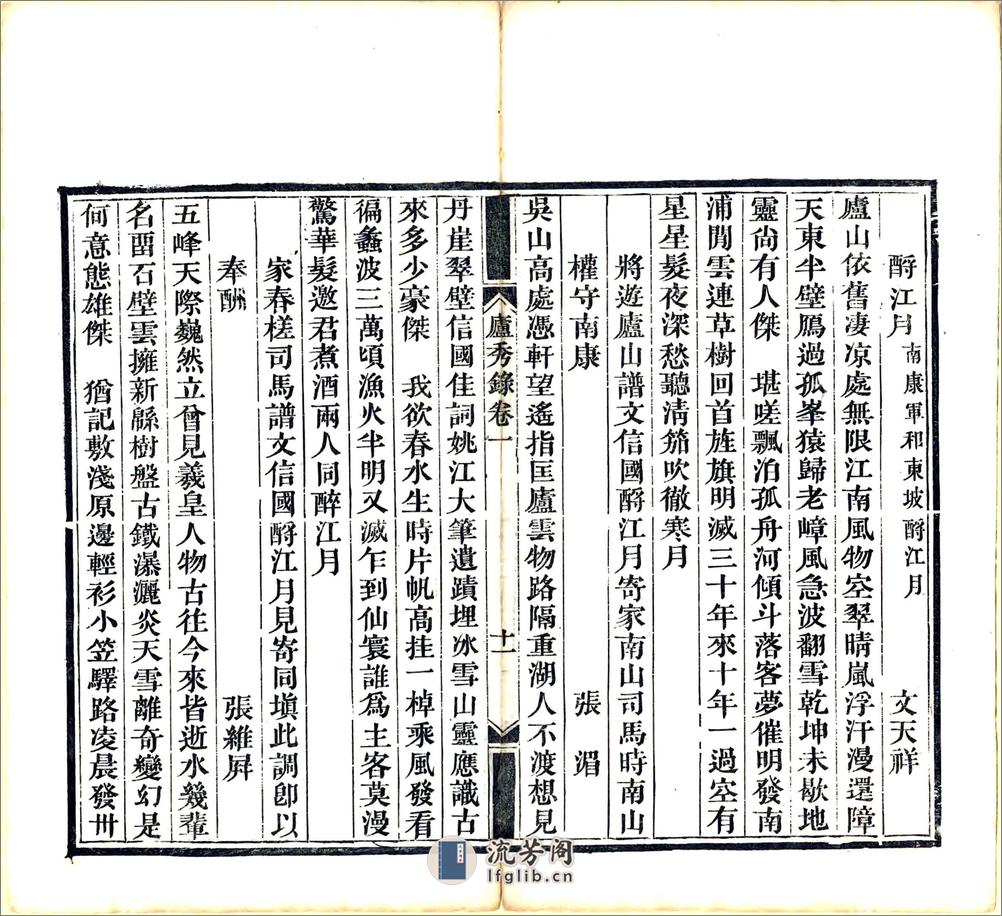 酹江月 南康軍和東坡酹江月 文天祥
廬山依舊凄凉處無限江南風物空翠晴嵐浮汗漫還障
天東半壁鴈過孤峯猿歸老嶂風急波翻雪乾坤未歇地
靈尚有人傑 堪嗟飄泊孤舟河傾斗落客夢催明發南
浦閒雲連草樹回首旌旗明滅三十年來十年一過空有
星星髮夜深愁聽淸笳吹徹寒月
將遊廬山譜文信國酹江月寄家南山司馬時南山
權守南康 張湄
吳山高處憑軒望遙指匡廬雲物路隔重湖人不渡想見
廬秀錄卷一 十一
丹崖翠壁信國佳詞姚江大筆遺蹟埋冰雪山靈應識古
來多少豪傑 我欲春水生時片帆高挂一棹乘風發看
徧蠡波三萬頃漁火半明又滅乍到仙寰誰爲主客莫漫
驚華髮邀君煮酒兩人同醉江月
家春槎司馬譜文信國酹江月見寄同塡此調卽以
奉酬 張維屛
五峰天際巍然立曾見羲皇人物古往今來皆逝水幾輩
名畱石壁雲擁新緜樹盤古鐵瀑灑炎天雪離奇變幻是
何意態雄傑 猶記敷淺原邊輕衫小笠驛路凌晨發卅
流芳阁
lfglib.cn